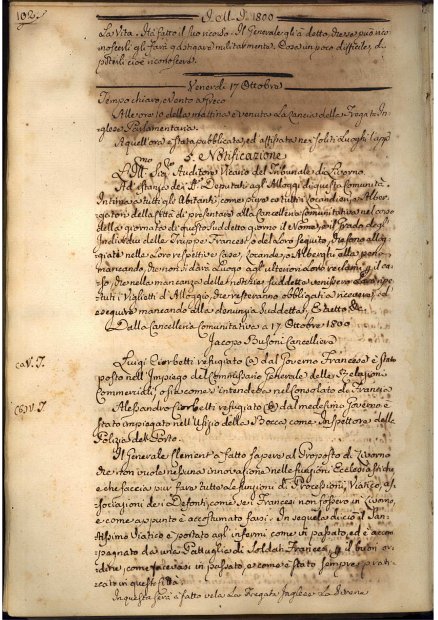 102
A. M. D. 1800
la Vita. Ha fatto il suo ricorso. Il Generale gli à detto, che se può rico-
noscerli gli farà gastigare militarmente. Cosa un poco difficile, di
poterli cioè riconoscere.
Venerdì 17 Ottobre
Tempo chiaro, e Vento a Greco
Alle ore 10 della mattina è venuta la Lancia della Fregata In-
glese Parlamentaria.
A quell'ora è stata pubblicata, ed affissata ne' soliti Luoghi l'app.
5. Notificazione
L'Ill.mo Sig.re Auditore Vicario del Tribunale di Livorno
Ad istanza dei Deputati agli Alloggi di questa Comunità
Intima a tutti gli Abitanti, come pure a tutti i Locandieri, e Alber-
gatori della Città di presentare alla Cancelleria Comunitativa nel corso
della giornata di questo suddetto giorno il Nome, e il Grado degl'
Individui delle Truppe Francesi, e del Loro seguito, che sono allog-
giati nelle Loro respettive Case, Locande, e Alberghi alla pena
mancando, che non si darà Luogo agl'ulteriori Loro reclami, in
so, che nella mancanza delle notizie suddette venissero
tuti i Viglietti d'Alloggio, che resteranno obbligati a ricevere, ed
eseguire mancando alla denunzia suddetta, E tutto &c.
Dalla Cancelleria Comunitativa a 17 Ottobre 1800
Jacopo Busoni Cancelliere
(a) V. I.
Luigi Ciorbetti refugiato (a) dal Governo Francese è stato
posto nell'Impiego del Commissario Generale delle Relazioni
Commerciali, o sia come s'intendeva nel Consolato di Francia
(b) V. I.
Alessandro Ciorbetti refugiato (b) dal medesimo Governo è
stato impiegato nell'Ufizio della Bocca come Inspettore della
Polizia del Porto.
Il Generale Clement à fatto sapere al Proposto di Livorno
che non vuole nessuna innovazione nelle funzioni Ecclesiastiche
e che faccia pur fare tutte le funzioni di Processioni, Viatico, as-
sociazioni dei Defonti, come se i Francesi non fossero in Livorno,
e come appunto è accostumato farsi. In sequela di ciò il San-
tissimo Viatico è portato agl'infermi come in passato, ed è accom-
pagnato da una Pattuglia di Soldati Francesi, per il buon or-
dine, come facevasi in passato, e come è stato sempre prati-
cato in questa Città.
In questa sera à fatto vela la Fregata Inglese La Sirena